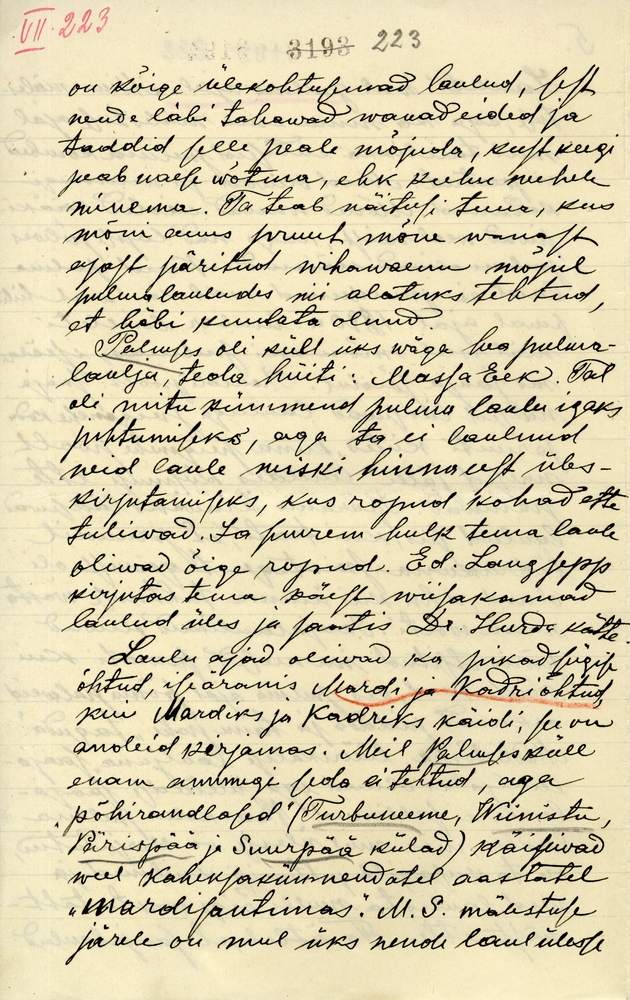 VII. 223
3193 223
on kõige ülekohtusemad laulud, sest
nende läbi tahawad wanad eided ja
taadid selle peale mõjuda, kust keegi
peab naese wõtma, ehk kuhu mehele
minema. Ta teab näitusi tuua, kus
mõni aus pruut mõne wanast
ajast päritud wihawaenu mõjul
pulma lauludes nii alatuks tehtud,
et häbi kuulata olnud.
Palmses oli küll üks wäga hea pulma-
laulja, teda hüiti: Massa Eek. Tal
oli mitu kümmend pulma laulu igaks
juhtumiseks, aga ta ei laulnud
neid laule miski hinna eest üles-
kirjutamiseks, kus ropud kohad ette
tuliwad. Ja suurem hulk tema laule
oliwad õige ropud. Ed. Langsepp
kirjutas tema käest wiisakamad
laulud üles ja saatis Dr. Hurda kätte.
Laulu ajad oliwad ka pikad sügise
õhtud, iseäranis Mardi ja Kadri õhtud,
kui Mardiks ja Kadriks käidi, se on
andeid kerjamas. Meil Palmses küll
enam ammugi seda ei tehtud, aga
"põhirandlased" (Turbuneeme, Wiinistu,
Pärispää ja Suurpää külad) käisiwad
weel kaheksakümnendatel aastatel
"mardisantimas". M. S. mälestuse
järele on mul üks nende laul ülesse